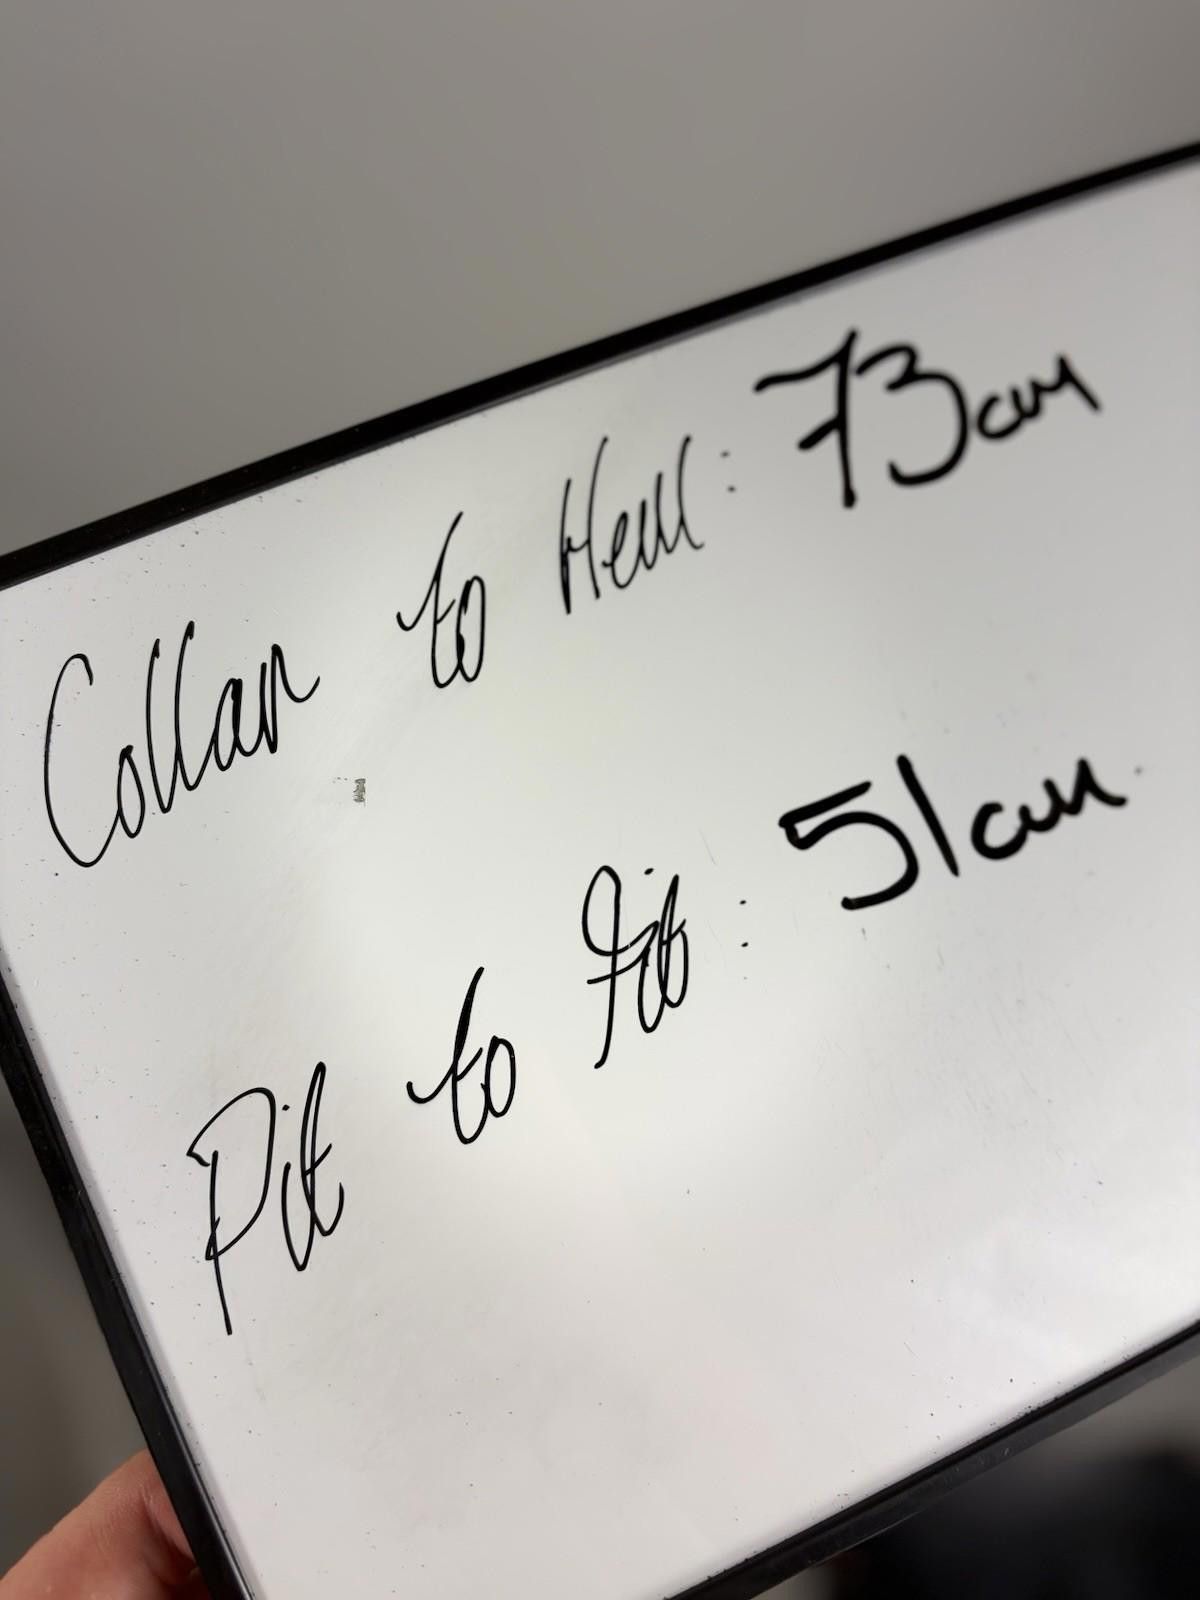 Collar to Hem: 73cm
Pit to Pit: 51cm